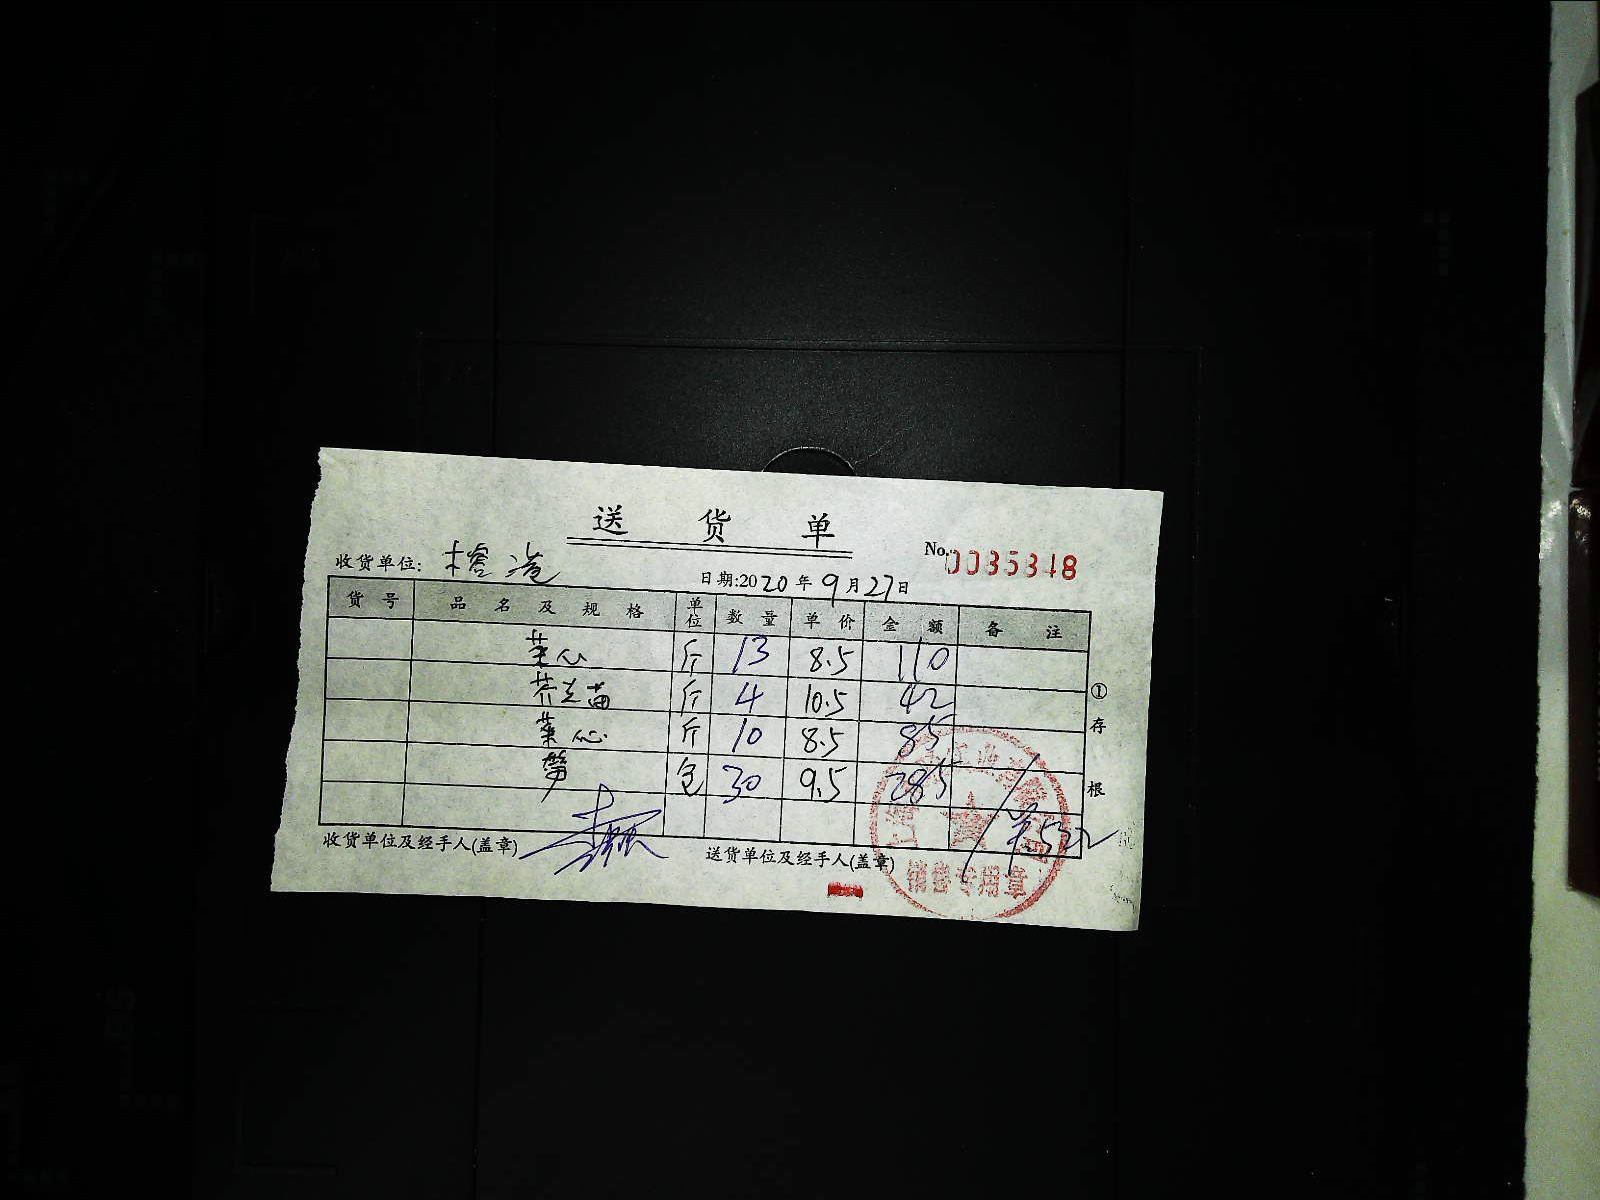 送 货 单
No. 0035348
收货单位: 榕港
日期:2020年9月27日
货号 品名及规格 单位 数量 单价 金额 备注
菜心 斤 13 8.5 110
芥兰苗 斤 4 10.5 42
菜心 斤 10 8.5 85
笋 包 30 9.5 285
¥522
① 存根
收货单位及经手人(盖章) 送货单位及经手人(盖章)
销售专用章